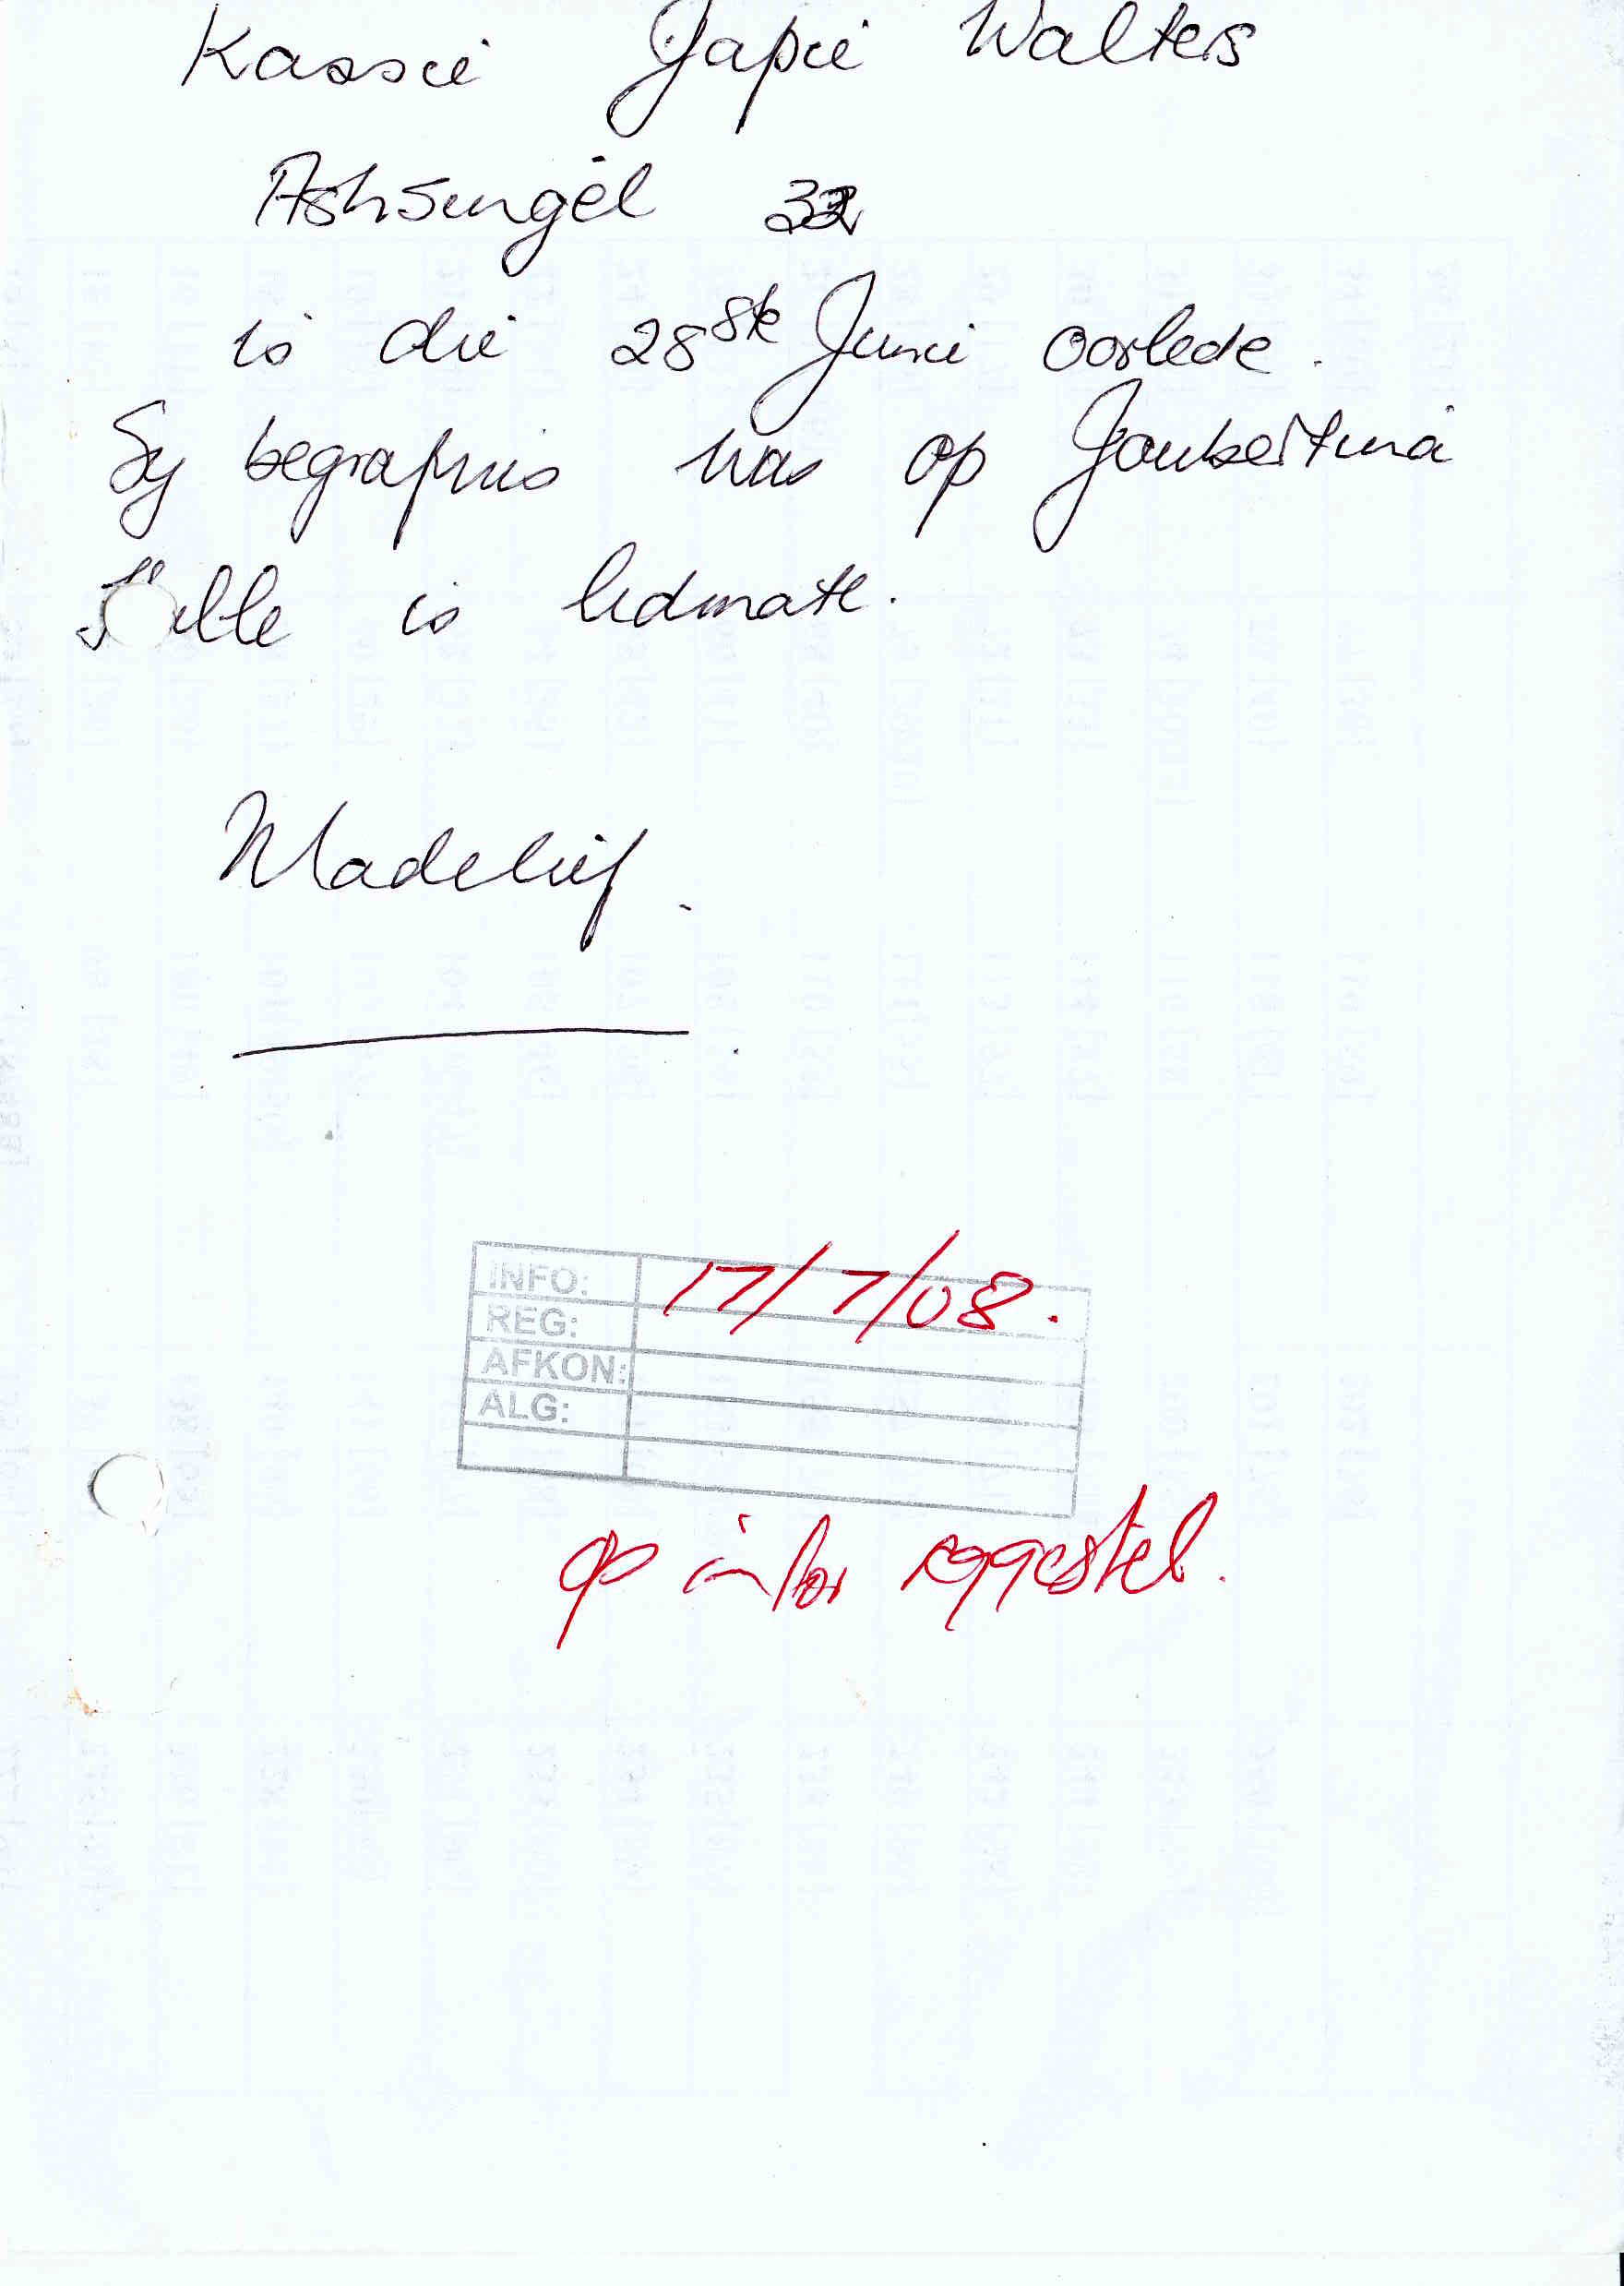 Kassie Japie Walters
Ashsingel 32
is die 28ste Junie oorlede.
Sy begrafnis was op Joubertina
Hulle is lidmate.
Madelief.
INFO: 17/7/08.
REG:
AFKON:
ALG:
op infor reggestel.